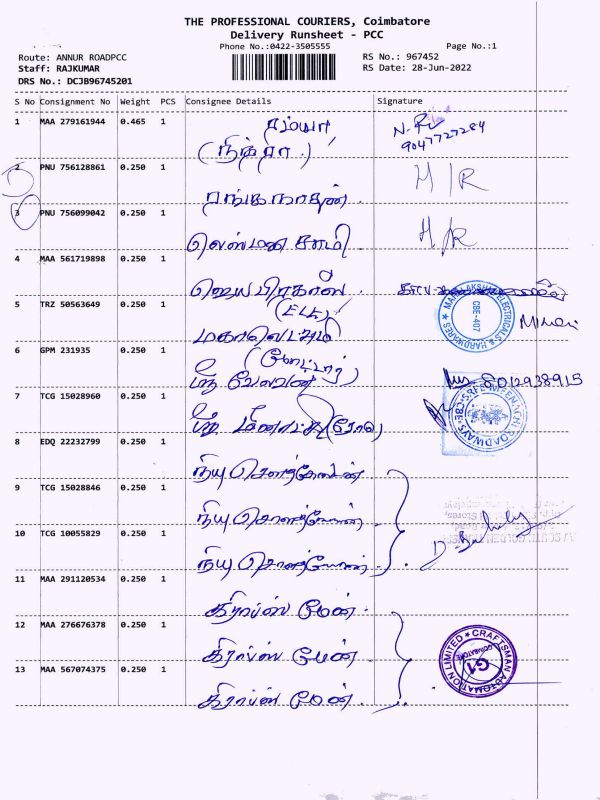 THE PROFESSIONAL COURIERS, Coimbatore
Delivery Runsheet - PCC
Phone No.:0422-3505555
Page No.:1
Route: ANNUR ROADPCC
RS No.: 967452
Staff: RAJKUMAR
RS Date: 28-Jun-2022
DRS No.: DCJB96745201
S No Consignment No Weight PCS Consignee Details Signature
1 MAA 279161944 0.465 1 ரம்யா
(நித்ரா) 9047727284
2 PNU 756128861 0.250 1 H/R
ரங்கநாதன்
3 PNU 756099042 0.250 1 H/R
லெஸ்மணசாமி
4 MAA 561719898 0.250 1
ஜெயபிரகாஸ்
5 TRZ 50563649 0.250 1 (ELE)
மகாலெட்சுமி
MAHALAKSHMI ELECTRICALS & HARDWARES
CBE-407
6 GPM 231935 0.250 1 (மோட்டார்)
ஸ்ரீ வேலவன் 8012938915
7 TCG 15028960 0.250 1
ஸ்ரீ மீனாட்சி (ரோடு)
SREE MEENAKSHI ROADWAYS
CBE
8 EDQ 22232799 0.250 1
நியு கௌத்கோல்டன்
9 TCG 15028846 0.250 1
10 TCG 10055829 0.250 1
11 MAA 291120534 0.250 1
கிராப்ஸ் மேன்
12 MAA 276676378 0.250 1
கிராப்ஸ் மேன்
13 MAA 567074375 0.250 1
கிராப்ஸ் மேன்
CRAFTSMAN AUTOMATION LIMITED
G1
COIMBATORE